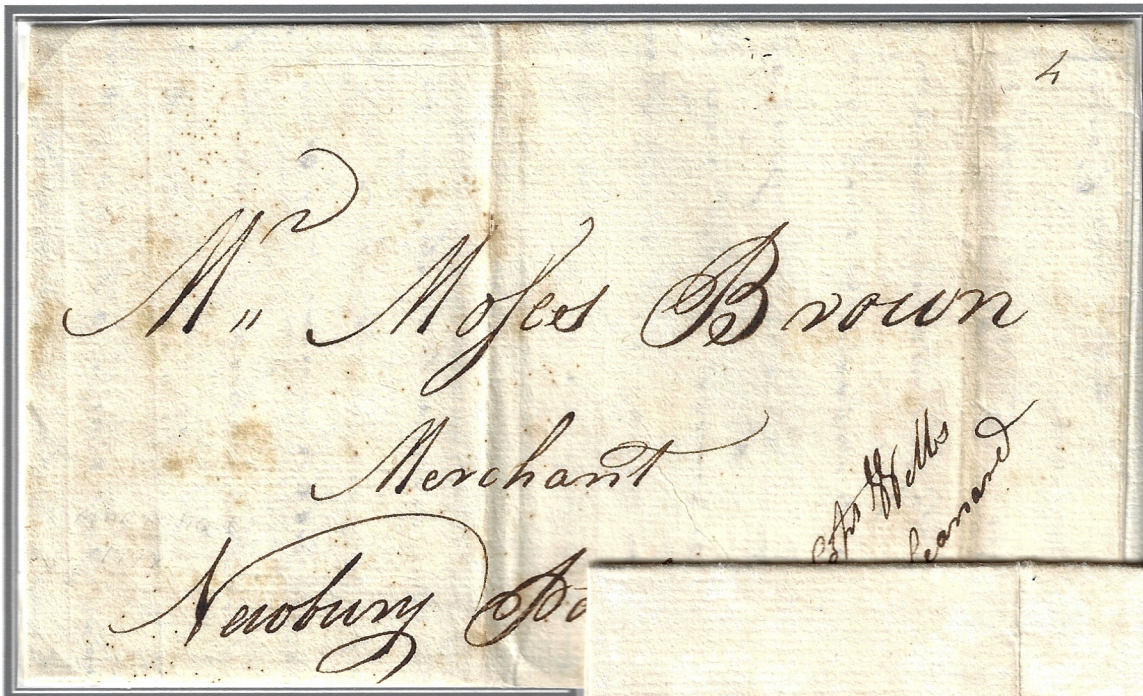 4
Mr Moses Brown
Merchant
Newbury
Wells